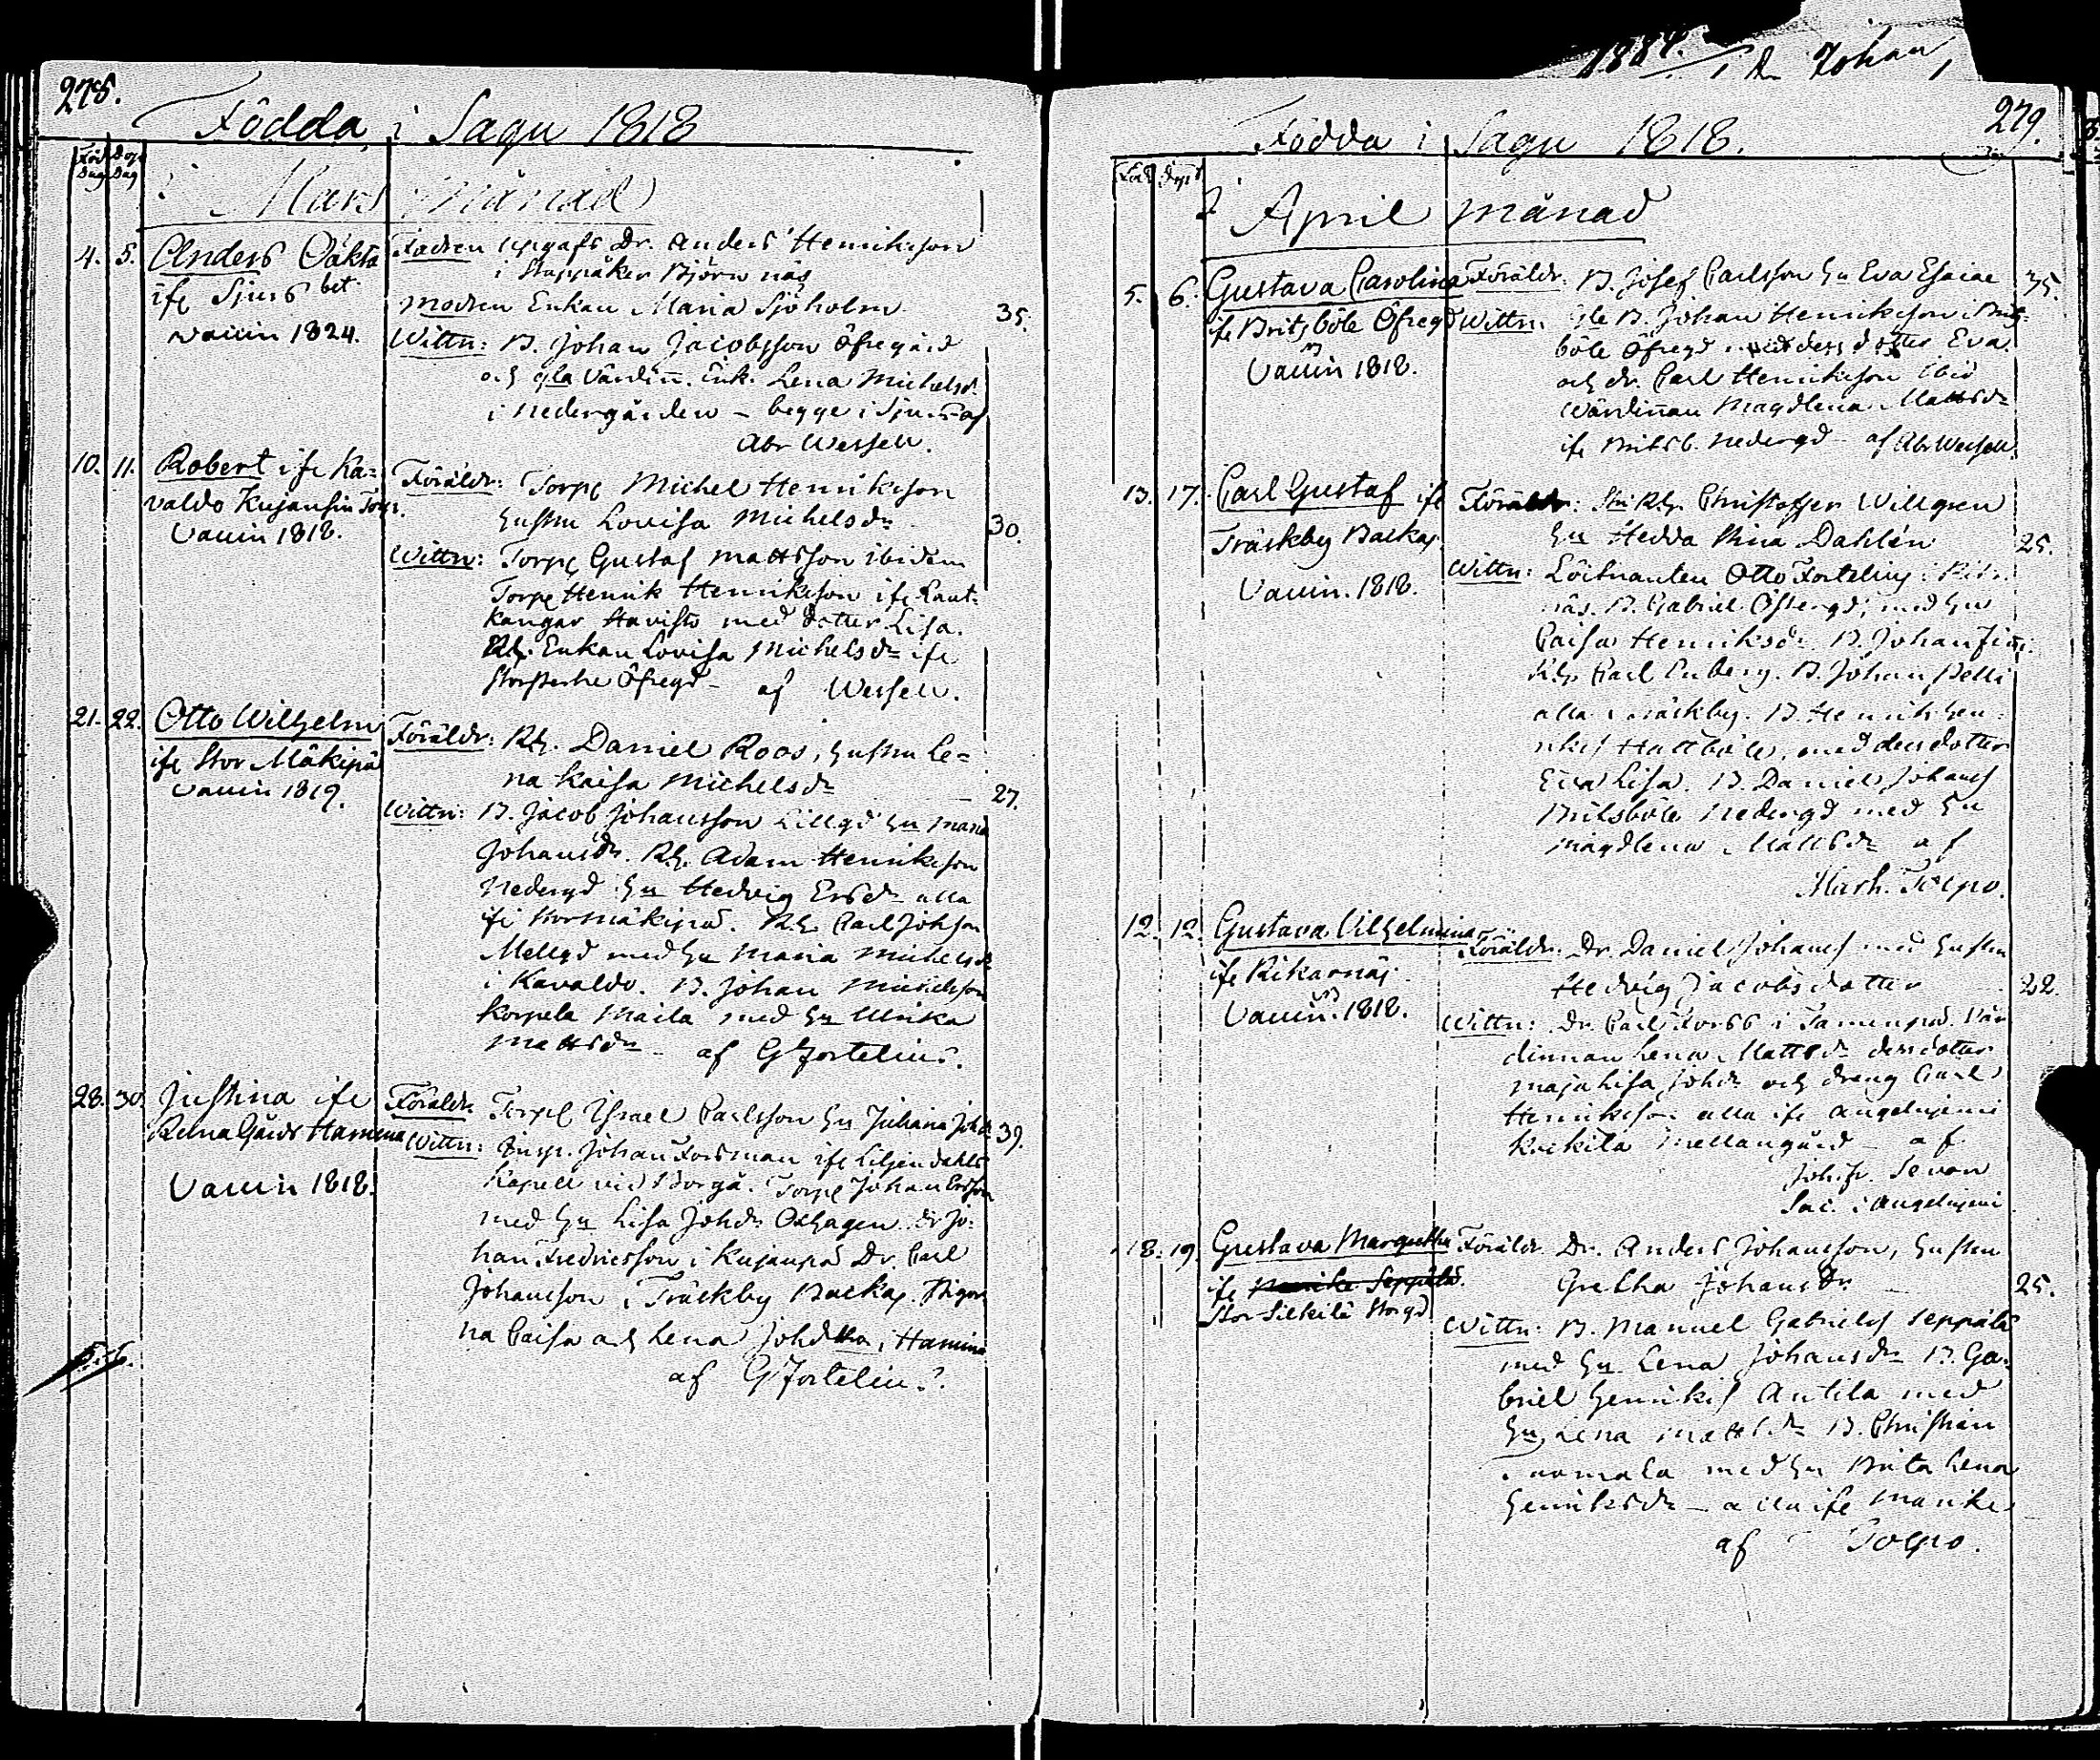 278.
Födda i Sagu 1818
Föd Döp
Dag Dag
Mars Månad
4. 5. Anders Oäkta
ifr Sjurs bet.
Vaccin 1824.
Fadren uppgafs Dr. Anders Henriksson
i Stappåker Björnnäs
modren Enkan Maria Sjöholm 35.
Wittn: B. Johan Jacobsson Öfregård
och gla Värdinn. Enk. Lena Michelsdr
i nedergården – begge i Sjurs af
Abr Wessell.
10. 11. Robert ifr Ka=
valdo Kujansin Torp.
Vaccin 1818.
Föräldr: Torp Michel Henriksson
hustru Lovisa Michelsdr 30.
Wittn: Torp Gustaf Mattsson ibidem
Torp Henrik Henriksson ifr Raut=
kangar med dotter Lisa.
Rh. Enkan Lovisa Michelsdr ifr
Öfregd – af Wessell.
21. 22. Otto Wilhelm
ifr Stor Mäkipä
Vaccin 1819.
Föräldr: Rh. Daniel Roos, hustru Le=
na Kaisa Michelsdr 27.
Wittn: B. Jacob Johansson Lillgd hu Maria
Johansdr. Rh. Adam Henriksson
Nedergd hu Hedvig Ersdr alla
ifr Stormäkipä. Rh. Carl Johsson
Mellgd med hu Maria Michelsdr
i Kavaldo. B. Johan Michelsson
Korpela Maila med hu Ulrika
Mattsdr – af G Fortelius.
28. 30. Justina ifr
Gårds Hamina
Vaccin 1818.
Föräldr: Torp Israel Carlsson hu Juliana Johdr 39.
Wittn: Insp. Johan Forsman ifr Liljendahls
Kapell vid Borgå. Torp Johan Ersson
med hu Lisa Johdr Oxhagen. Dr Jo=
han Fredricsson i Kujanpä Dr. Carl
Johansson i Träskby Backa. Pigor=
na Caisa och Lena Johdttra i Hamina
af G Fortelius.
5. 6.
279.
Födda i Sagu 1818.
Föd Döpt
April månad
5. 6. Gustava Carolina
ifr Britsböle Öfregd
Vaccin 1818.
Föräldr: B. Josef Carlsson hu Eva Esaiae 35.
Wittn: gle B. Johan Henriksson Brits=
böle Öfregd med dess dotter Eva.
och dr. Carl Henriksson ibid
Wärdinnan Magdlena Mattsdr
ifr Britsb. nedergd – af Abr Wessell.
13. 17. Carl Gustaf ifr
Träskby Backa
Vaccin. 1818.
Föräldr: Christoffer Willgren
hu Hedda Stina Dahlén 25.
Wittn: Löitnanten Otto Fortelius i
näs. B. Gabriel Östergd, med hu
Caisa Henriksdr. B. Johan
Rh. Carl Enberg. B. Johan Pelli
alla i Träskby. B. Henrik Hen=
Hattböle, med dess dotter
Eva Lisa. B. Daniel Johans
Britsböle Nedergd med hu
Magdlena Mattsdr af
Math. Tolpo.
12. 12. Gustava Vilhelmina
ifr Rikarnäs.
Vaccin. 1818.
Föräldr: Dr. Daniel Johans med hustru
Hedvig Jacobsdotter 22.
Wittn: Dr. Carl Forss i Tamenpä. Vär=
dinnan Lena Mattsdr dess dotter
Maja Lisa Johdr och dreng Carl
Henriksson alla ifr Angelniemi
Kokkila Mellangård – af
Joh. Fr. Sevon
Sac. i Angelniemi
18. 19. Gustava Margretha
ifr Seppälä
Stor Silkilä Storgd
Föräldr: Dr. Anders Johansson, hustru
Gretha Johansdr. 25.
Wittn: B. Manuel Gabriels Seppälä
med hu Lena Johansdr B. Ga=
briel Henriks Antila med
hu Lena Mattsdr B. Christian
Tuomala med hu Brita Lena
Henriksdr – alla ifr Manike
af Tolpo.